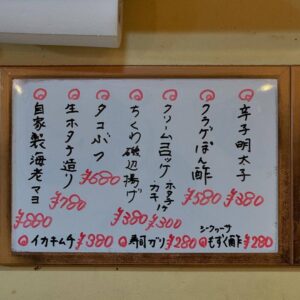 辛子明太子 ¥380
クラゲぽん酢 ¥580
クリームコロッケ ホタテ カキ ¥300
ちくわ磯辺揚げ ¥380
タコぶつ ¥680
生ホタテ造り ¥780
自家製海老マヨ ¥880
イカキムチ ¥380
寿司ガリ ¥280
もずく酢 ¥280